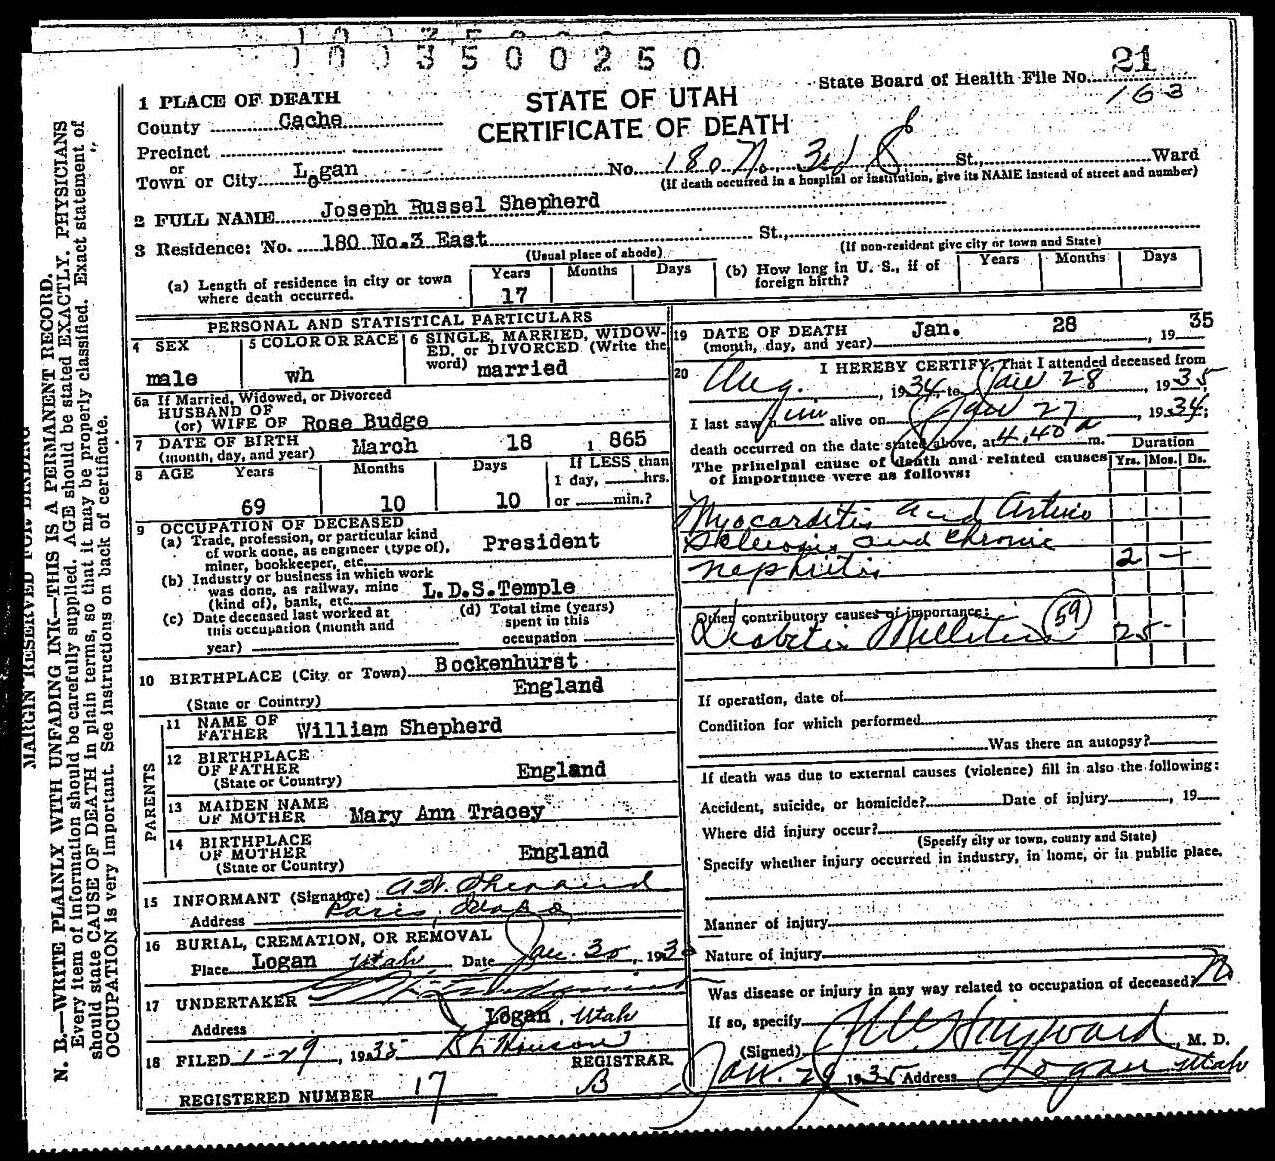 1003500250
State Board of Health File No. 21
163
STATE OF UTAH
CERTIFICATE OF DEATH
1 PLACE OF DEATH
County Cache
Precinct
or
Town or City Logan No. 180 No. 3rd St., Ward
(If death occurred in a hospital or institution, give its NAME instead of street and number)
2 FULL NAME Joseph Russel Shepherd
3 Residence: No. 180 No.3 East St.,
(Usual place of abode) (If non-resident give city or town and State)
(a) Length of residence in city or town where death occurred. Years 17 Months Days
(b) How long in U. S., if of foreign birth? Years Months Days
PERSONAL AND STATISTICAL PARTICULARS
4 SEX male
5 COLOR OR RACE wh
6 SINGLE, MARRIED, WIDOWED, or DIVORCED (Write the word) married
6a If Married, Widowed, or Divorced
HUSBAND OF
(or) WIFE OF Rose Budge
7 DATE OF BIRTH
(month, day, and year) March 18 1 865
8 AGE Years 69 Months 10 Days 10 If LESS than 1 day, hrs. or min.?
9 OCCUPATION OF DECEASED
(a) Trade, profession, or particular kind
of work done, as engineer (type of),
miner, bookkeeper, etc. President
(b) Industry or business in which work
was done, as railway, mine
(kind of), bank, etc. L.D.S.Temple
(c) Date deceased last worked at
this occupation (month and
year)
(d) Total time (years)
spent in this
occupation
10 BIRTHPLACE (City or Town) Bockenhurst
(State or Country) England
PARENTS
11 NAME OF
FATHER William Shepherd
12 BIRTHPLACE
OF FATHER
(State or Country) England
13 MAIDEN NAME
OF MOTHER Mary Ann Tracey
14 BIRTHPLACE
OF MOTHER
(State or Country) England
15 INFORMANT (Signature)
Address Paris, Idaho
16 BURIAL, CREMATION, OR REMOVAL
Place Logan Utah Date Jan. 30, 193
17 UNDERTAKER
Address Logan, Utah
18 FILED 1-29, 1935
REGISTRAR.
REGISTERED NUMBER 17
19 DATE OF DEATH
(month, day, and year) Jan. 28, 19 35
20 I HEREBY CERTIFY, That I attended deceased from
Aug., 1934, to Jan 28, 1935,
I last saw him alive on Jan 27, 1934;
death occurred on the date stated above, at 4.40 a m.
The principal cause of death and related causes
of importance were as follows:
Duration
Yrs. Mos. Ds.
Myocarditis and Arterio
Sklerosis and Chronic
nephritis 2 +
Other contributory causes of importance: 59
Diabetis Mellitus 25
If operation, date of
Condition for which performed
Was there an autopsy?
If death was due to external causes (violence) fill in also the following:
Accident, suicide, or homicide? Date of injury , 19
Where did injury occur?
(Specify city or town, county and State)
Specify whether injury occurred in industry, in home, or in public place.
Manner of injury
Nature of injury
Was disease or injury in any way related to occupation of deceased? No
If so, specify
(Signed) Hayward, M. D.
Jan. 29 1935 Address Logan Utah
MARGIN RESERVED FOR BINDING
N. B.—WRITE PLAINLY WITH UNFADING INK—THIS IS A PERMANENT RECORD.
Every item of information should be carefully supplied. AGE should be stated EXACTLY. PHYSICIANS
should state CAUSE OF DEATH in plain terms, so that it may be properly classified. Exact statement of
OCCUPATION is very important. See instructions on back of certificate.